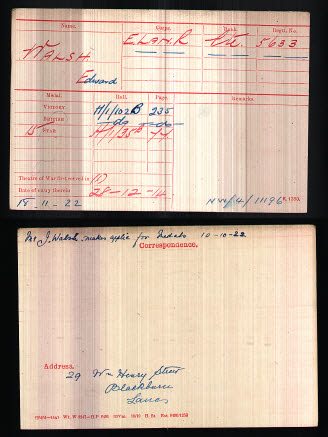 Name. Corps. Rank. Regtl. No.
WALSH E. Lan. R Pte. 5633
Edward
Medal. Roll. Page. Remarks.
VICTORY H/1/102B 235
BRITISH do do
15 STAR H/1/35B 74
Theatre of War first served in (1)
Date of entry therein 28-12-14
18.11.22 NW/4/11196
Mr J. Walsh makes applic for Medals 10-10-22
Correspondence.
Address.
29 Wm Henry Street
Blackburn
Lancs